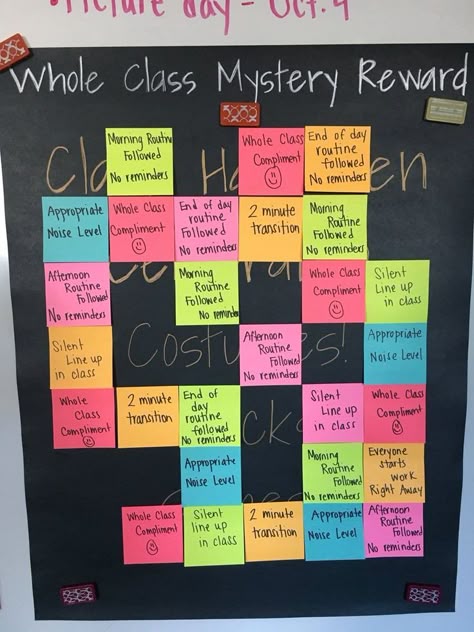 Picture day - Oct. 4
Whole Class Mystery Reward
Morning Routine
Followed
No reminders
Whole Class
Compliment
End of day
routine
followed
No reminders
Cla H en
Appropriate
Noise Level
Whole Class
Compliment
End of day
routine
Followed
No reminders
2 minute
transition
Morning
Routine
Followed
No reminders
Afternoon
Routine
Followed
No reminders
Morning
Routine
Followed
No reminders
Whole Class
Compliment
Silent
Line up
in class
Silent
Line up
in class
Costumes!
Afternoon
Routine
Followed
No reminders
Appropriate
Noise Level
Whole
Class
Compliment
2 minute
transition
End of
day
routine
followed
No reminders
cks
Silent
Line up
in class
Whole Class
Compliment
Appropriate
Noise Level
Morning
Routine
Followed
No reminders
Everyone
starts
work
Right Away
Whole Class
Compliment
Silent
line up
in class
2 minute
transition
Appropriate
Noise Level
Afternoon
Routine
Followed
No reminders